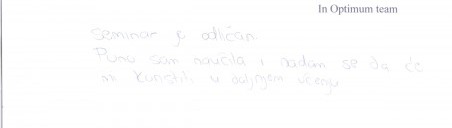 In Optimum team
Seminar je odličan.
Puno sam naučila i nadam se da će
mi koristiti u daljnjem učenju